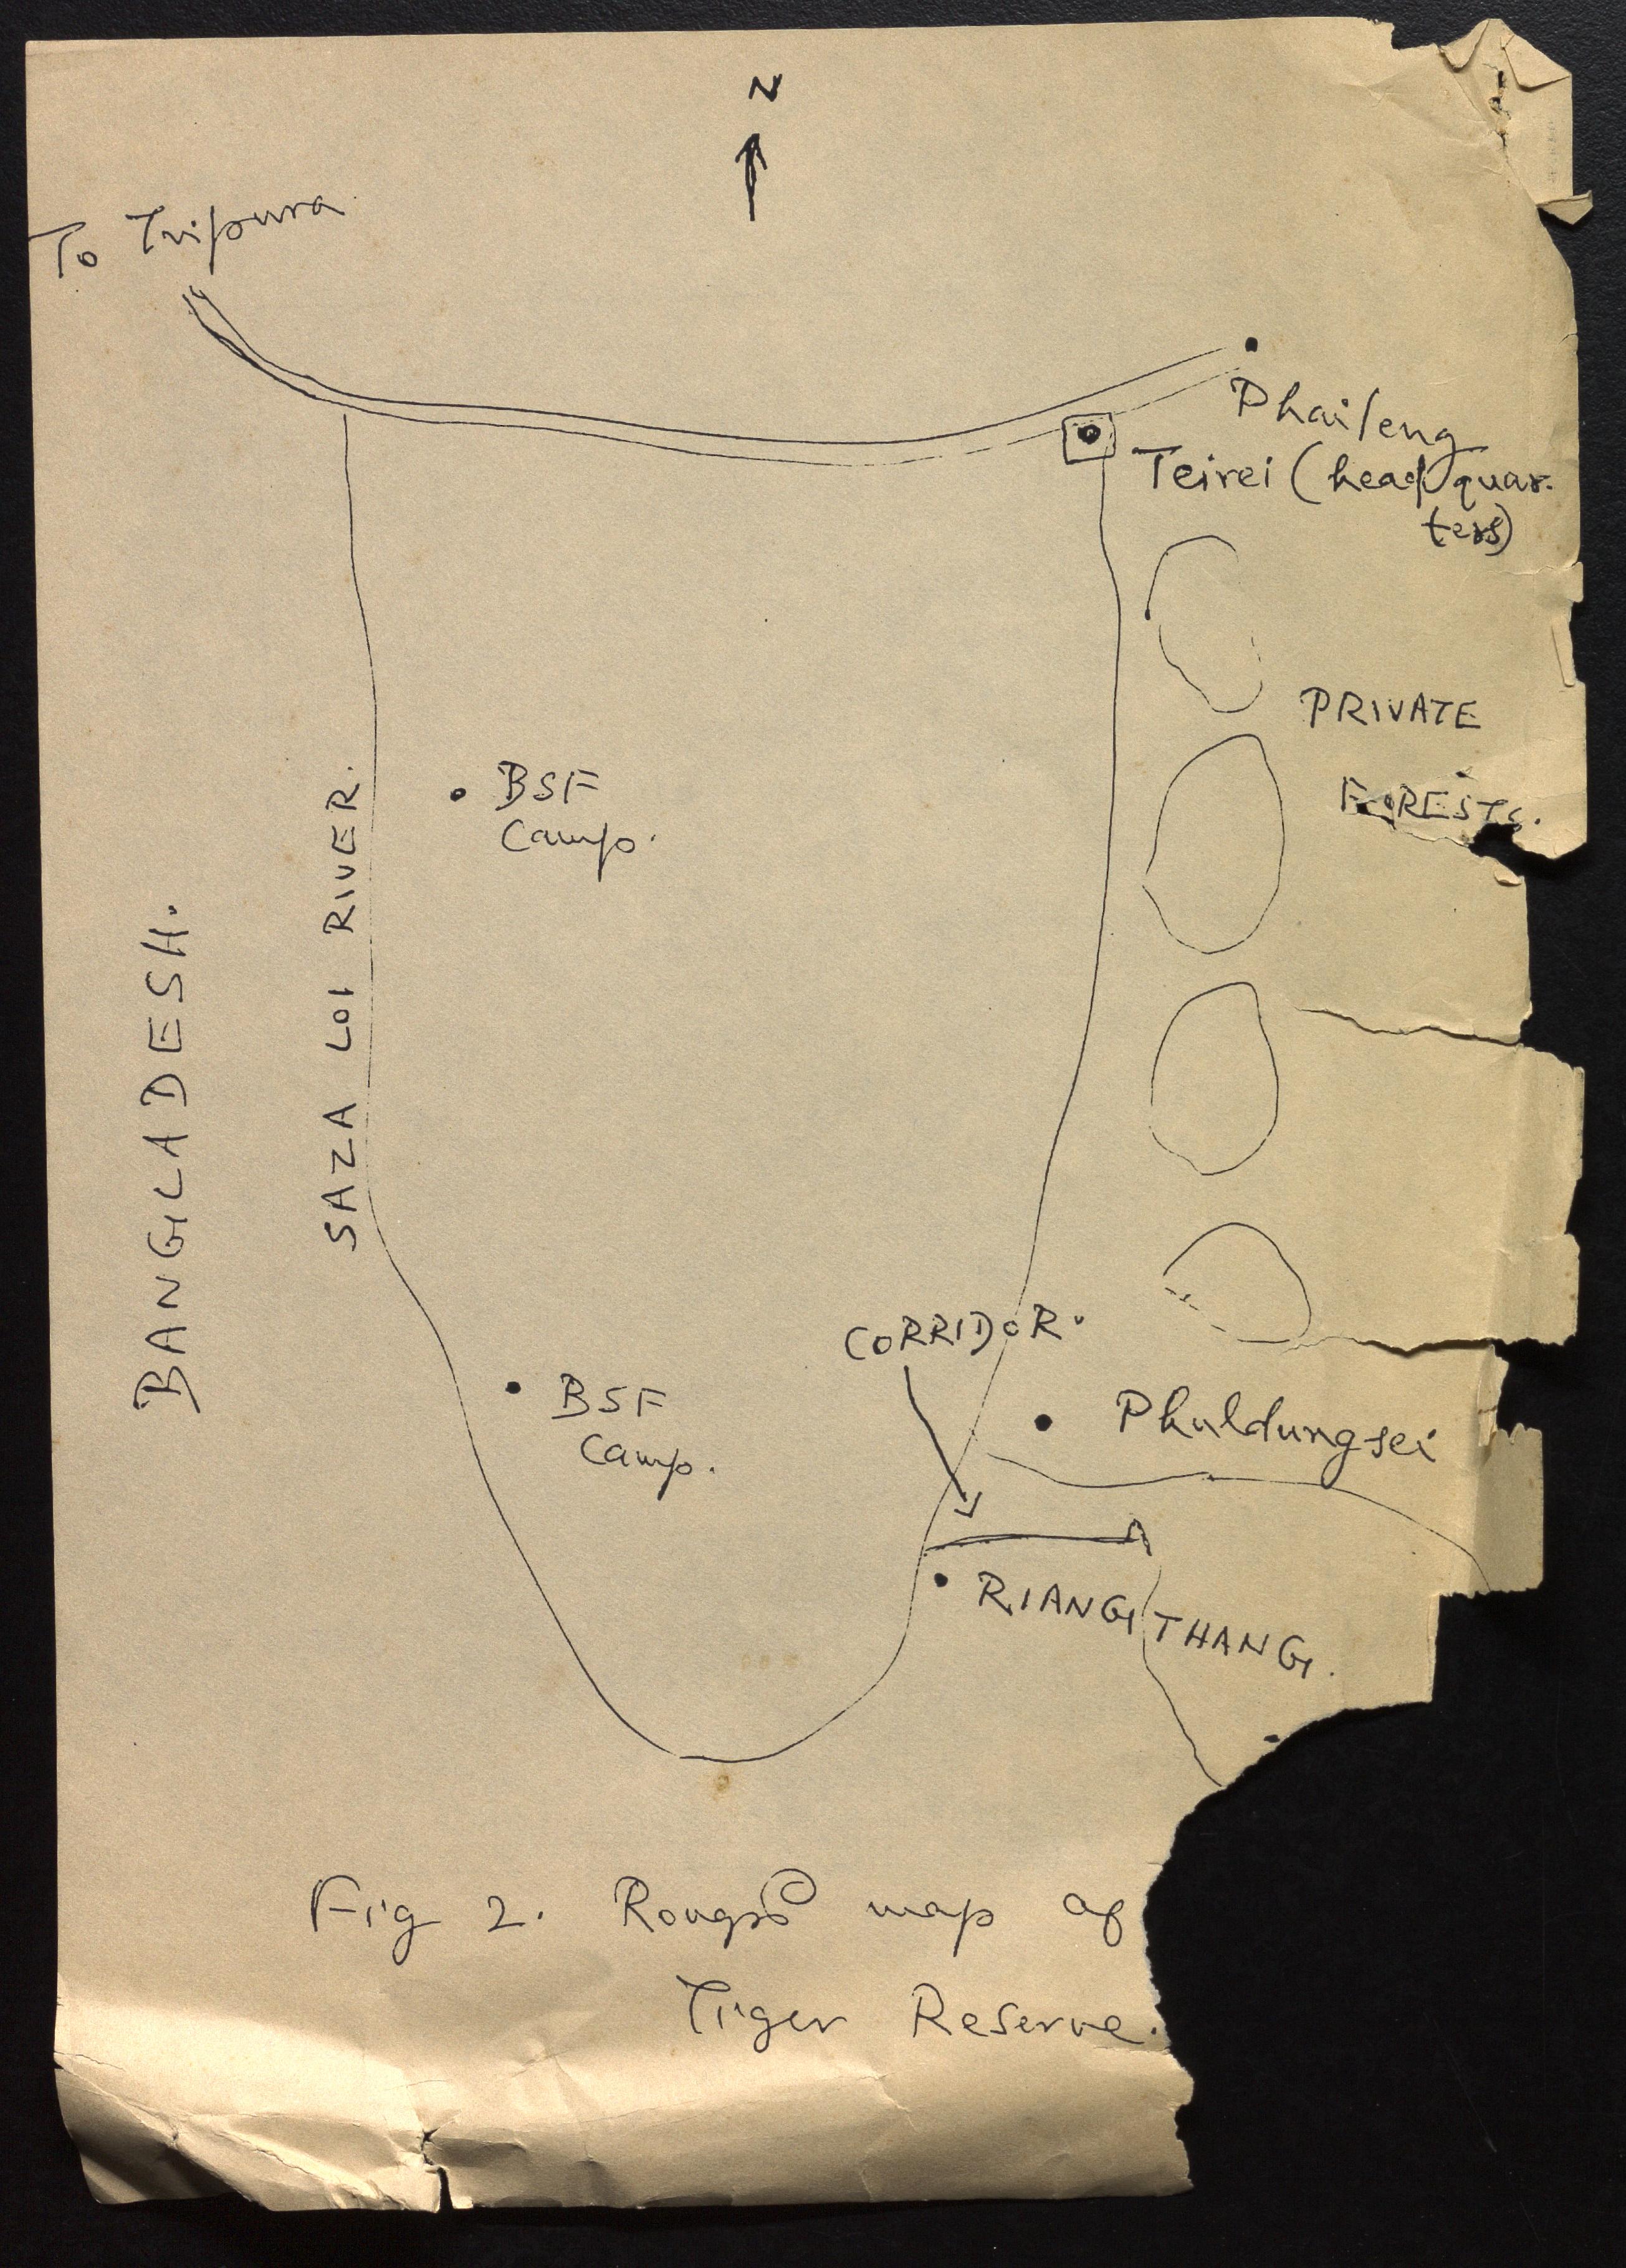 N
To Tripura
Phaileng
Teirei (headquar-
ters)
PRIVATE
FORESTS.
BSF
Camp.
SAZA LOI RIVER.
BANGLADESH.
CORRIDOR.
BSF
Camp.
Phuldungsei
RIANGTHANG.
Fig 2. Rough map of
Tiger Reserve.